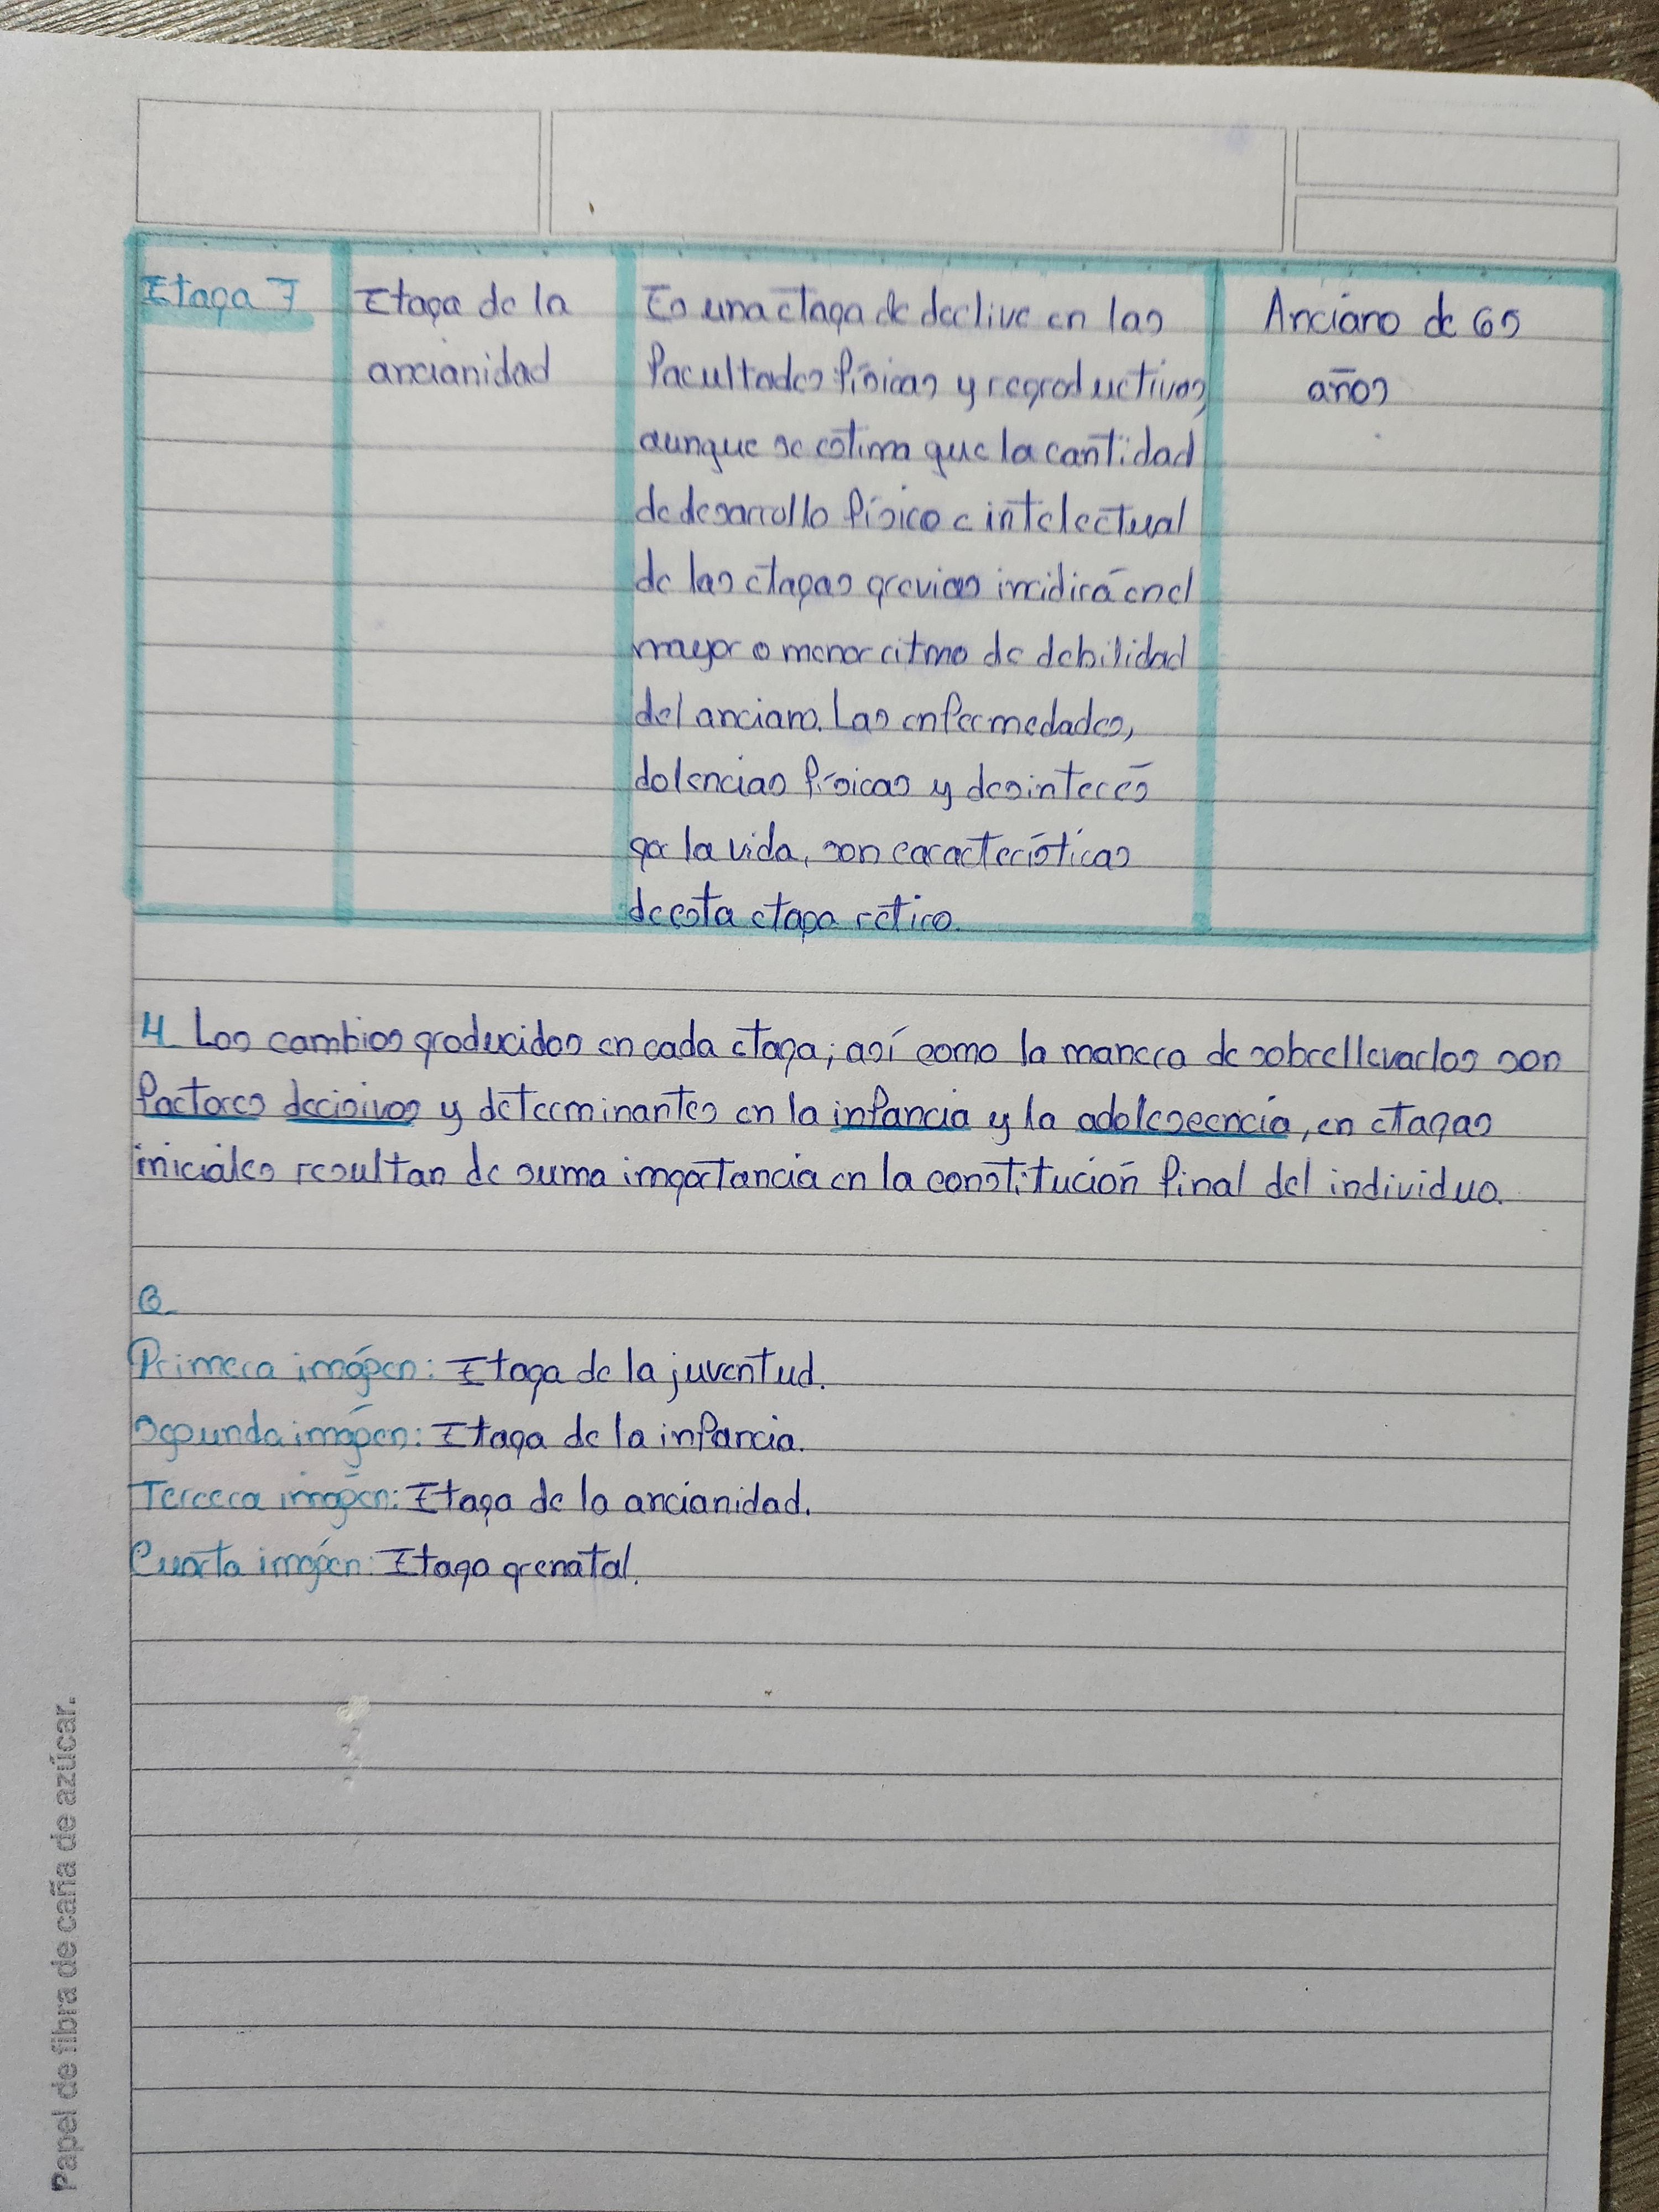 Etapa 7
Etapa de la
ancianidad
Es una etapa de declive en las
facultades físicas y reproductivas,
aunque se estima que la cantidad
de desarrollo físico e intelectual
de las etapas previas incidirá en el
mayor o menor ritmo de debilidad
del anciano. Las enfermedades,
dolencias físicas y desinterés
por la vida, son características
de esta etapa retiro.
Anciano de 65
años
4. Los cambios producidos en cada etapa; así como la manera de sobrellevarlos son
factores decisivos y determinantes en la infancia y la adolescencia, en etapas
iniciales resultan de suma importancia en la constitución final del individuo.
B.
Primera imágen: Etapa de la juventud.
Segunda imágen: Etapa de la infancia.
Tercera imágen: Etapa de la ancianidad.
Cuarta imágen: Etapa prenatal.
Papel de fibra de caña de azúcar.